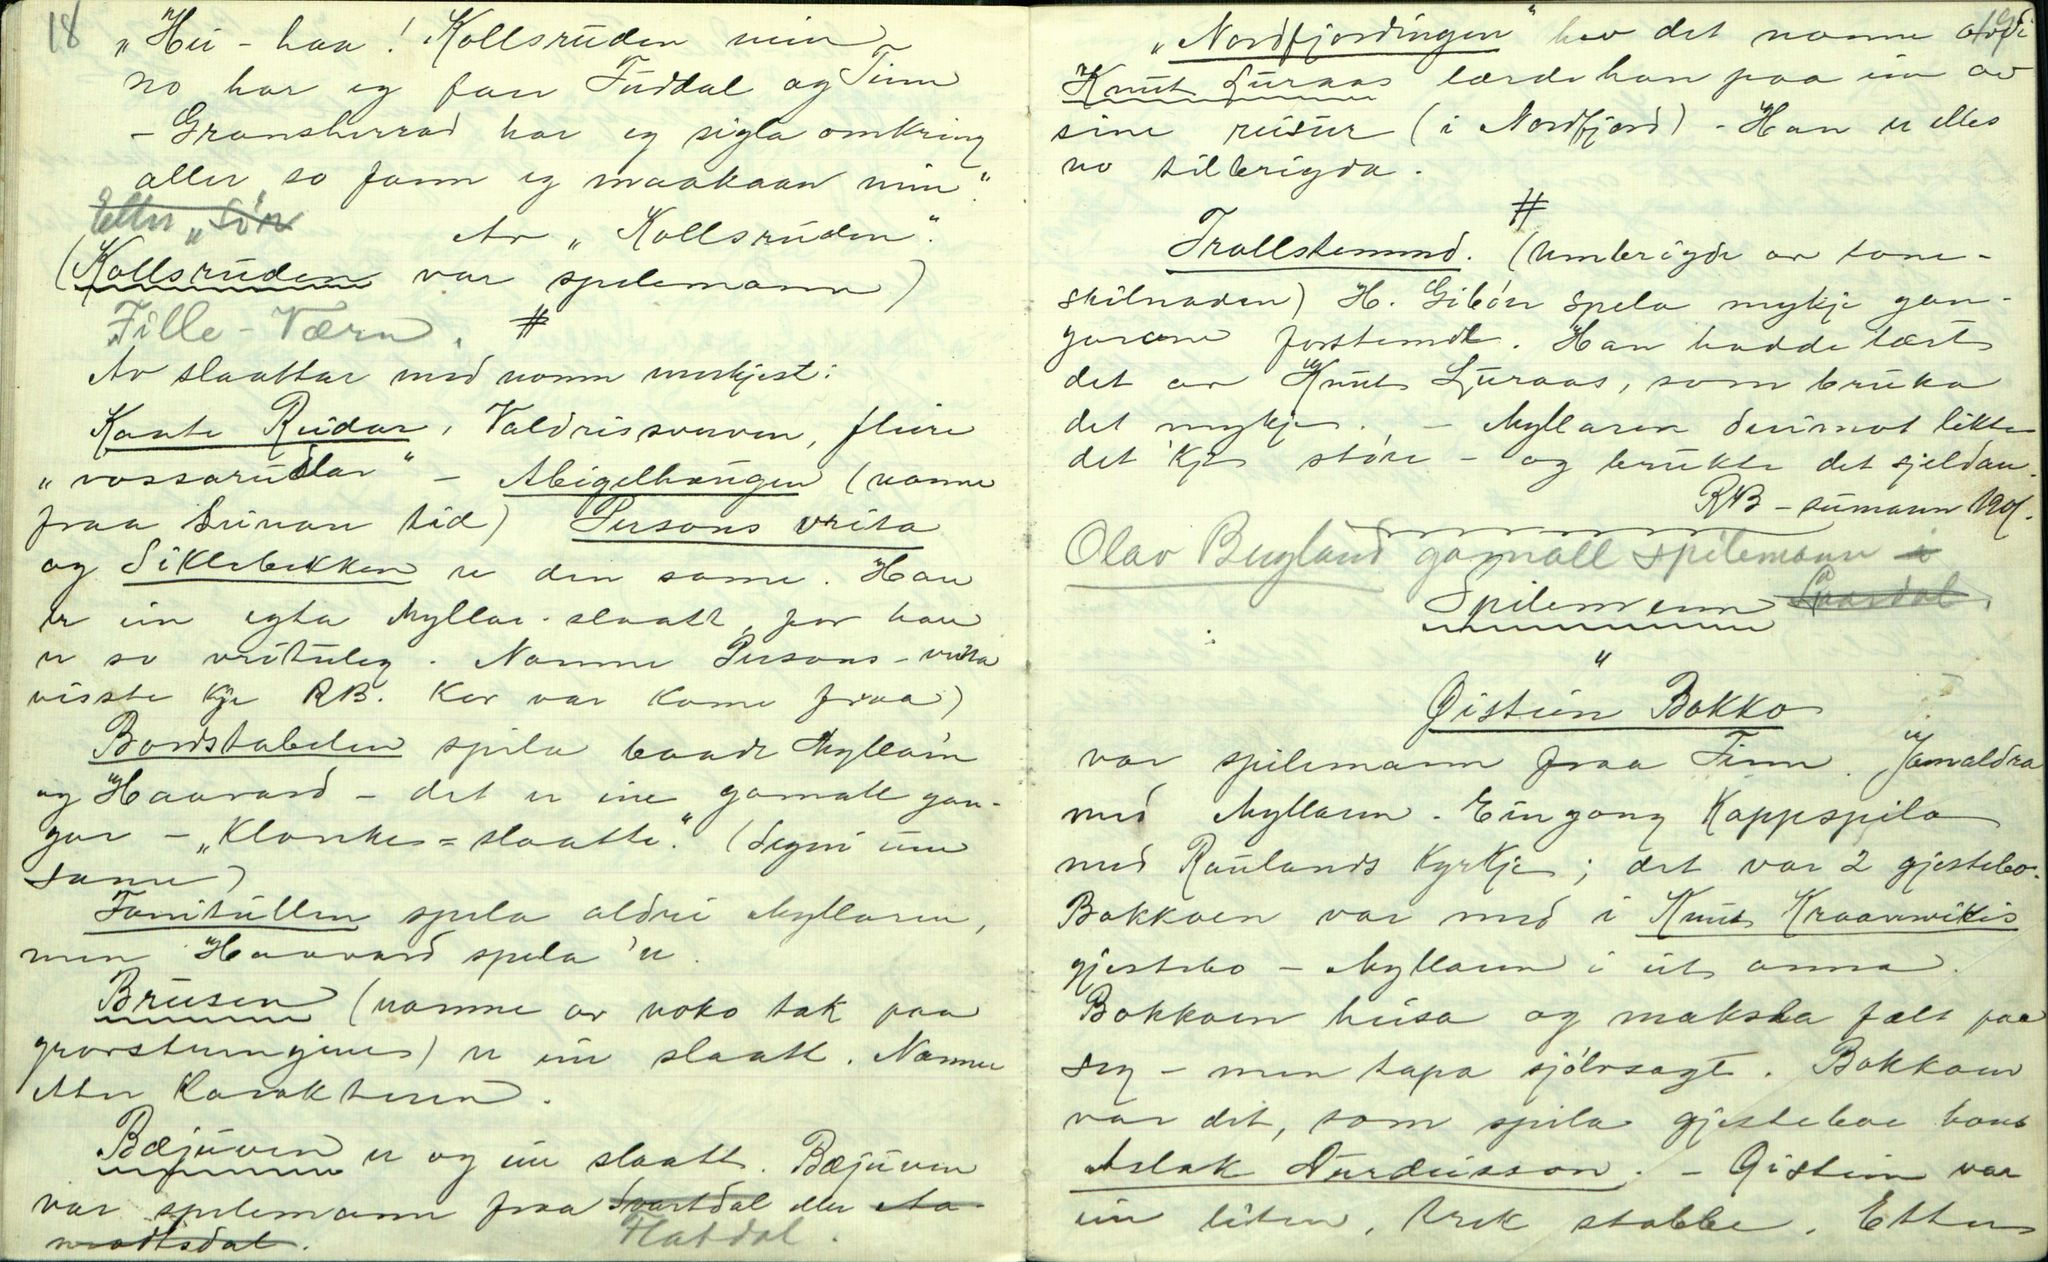 18
„Hu - haa! Kollsruden min
no har eg fare Tuddal og Tinn
- Gransherrad har eg sigla omkring
aller so fann eg maakaan min".
Etter „Sin
Av „Kollsruden".
(Kollsruden var spelemann)
Fille-Værn. #
Av slaattar med namn merkjest:
Kaate Reidar, Valdrisverven, fleire
„vossarudlar" - Abigelhaugen (namne
fraa seinare tid) Persons vrita
og Siklebekken er den same. Han
er ein egta Myllar-slaatt, for han
er so vrituleg. Namne Persons-vrita
visste kje RB. kor var kome fraa)
Bordstabelen spela baade Myllarn
og Haavard - det er ein gamall gan-
gar - „Klonkes=slaatte". (Segni um
same)
Fanitullen spela aldri Myllaren,
men Haavard spela 'n.
Brusen (namne av noko tak paa
grovstrengjene) er ein slaatt. Namne
etter karakteren.
Bæjuven er og ein slaatt. Bæjuven
var spelemann fraa Svartdal eller Aa-
modtsdal. Flatdal.
19
„Nordfjordingen" hev det namne avdi
Knut Luraas lærde han paa ein av
sine reisur (i Nordfjord) - Han er elles
no tilbrigda.
#
Trollstemmd. (Umbrigde av tone-
skilnaden) H. Gibøen spela mykje gan-
garane forstemde. Han hadde lært
det av Knut Luraas, som bruka
det mykje. - Myllaren derimot likte
det kje større - og brukte det sjeldan.
RB - sumaren 1901.
Olav Bugland gamall spelemann i
Spelemenn Svartdal.
"
Øistein Bakko
var spelemann fraa Tinn. Jamaldra
med Myllaren. Ein gong kappspela
med Raulands kyrkje; det var 2 gjestebo.
Bakkaen var med i Knut Kraanvikis
gjestebo - Myllaren i eit anna.
Bakkaen husa og maksla fælt paa
seg - men tapa sjølvsagt. Bakkaen
var det, som spela gjesteboe hans
Aslak Nurdeisson. - Øistein var
ein liten, brek stabbe. Etter